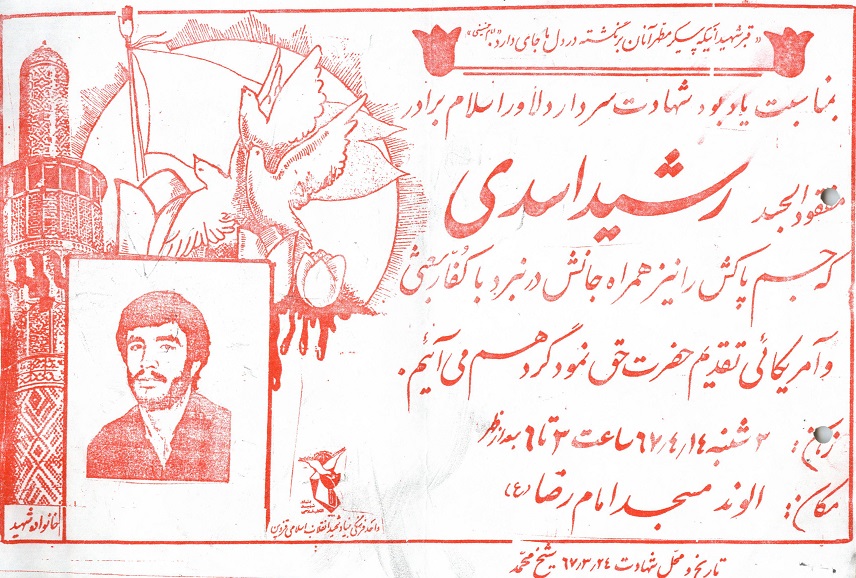 «قبر شهید آنیکه پیکر مطهر آنان برنگشته در دل ما جای دارد» «امام خمینی»
بمناسبت یادبود شهادت سردار دلاور اسلام برادر
مفقود الجسد رشید اسدی
که جسم پاکش را نیز همراه جانش در نبرد با کفار بعثی
و آمریکائی تقدیم حضرت حق نمود گرد هم می آئیم.
زمان: ۲ شنبه ۶۷٫۴٫۱۴ ساعت ۳ تا ۶ بعد از ظر
مکان: الوند مسجد امام رضا (ع)
خانواده شهید
واحد فرهنگی بنیاد شهید انقلاب اسلامی قزوین
تاریخ و محل شهادت ۶۷٫۳٫۲۴ شیخ محمد